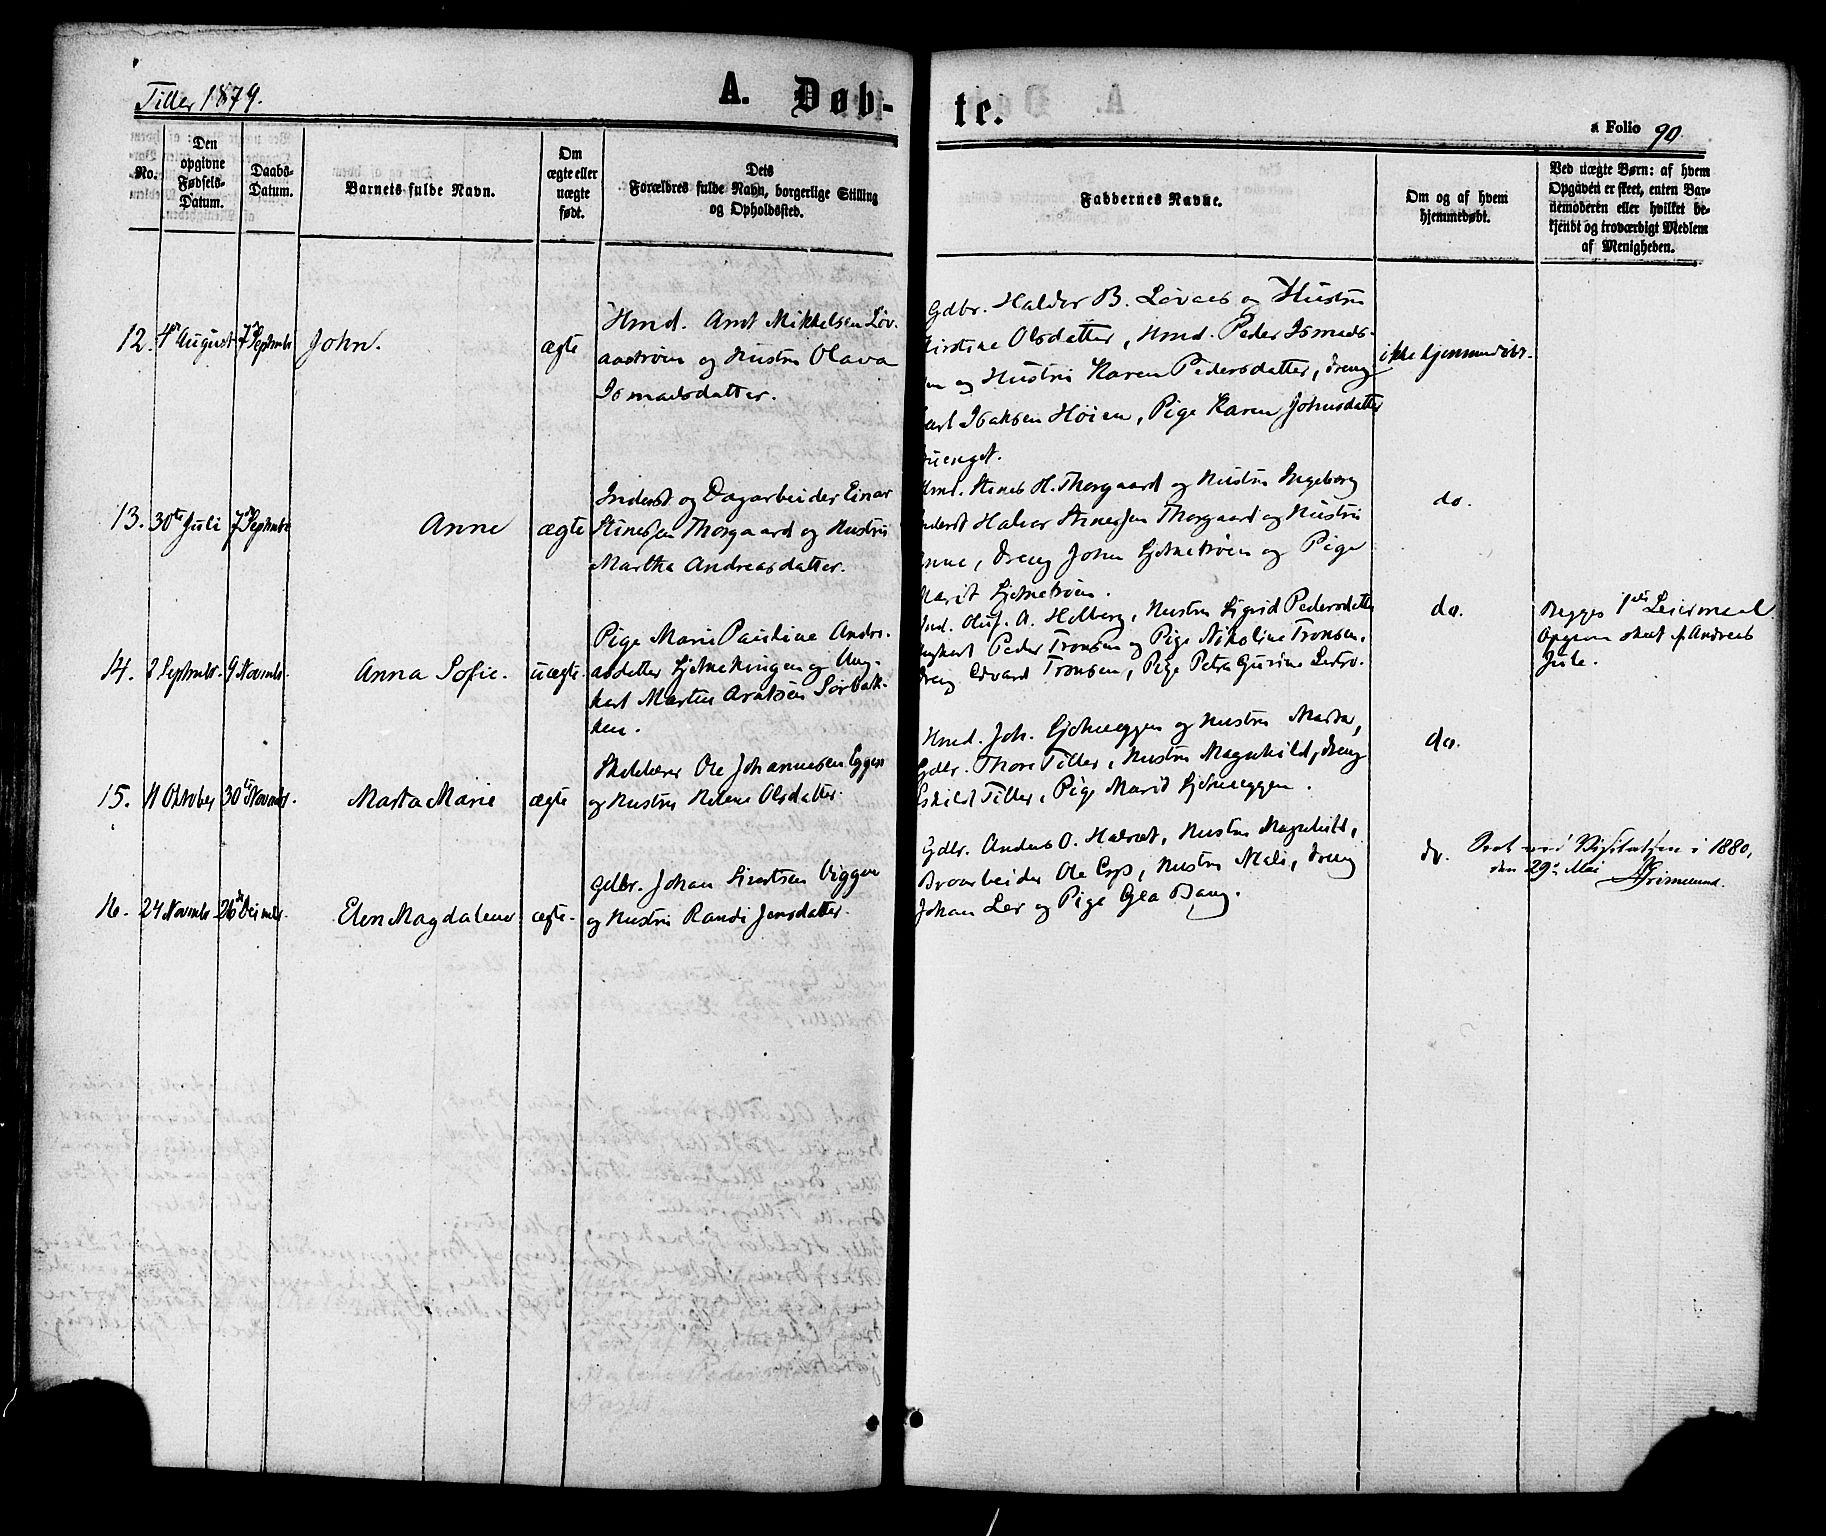 Tiller 1879.
A. Døb-
te.
a Folio 90.
No.
Den
opgivne
Fødsels-
Datum.
Daabs-
Datum.
Barnets fulde Navn.
Om
ægte eller
uægte
født.
Dets
Forældres fulde Navn, borgerlige Stilling
og Opholdssted.
Faddernes Navne.
Om og af hvem
hjemmedøbt.
Ved uægte Børn: af hvem
Opgaven er skeet, enten Bar-
nemoderen eller hvilket be-
kjendt og troværdigt Medlem
af Menigheden.
12. 4 August 7 Septembr John. ægte
Hmd. Arnt Mikkelsen Løv-
aastrøen og Hustru Olava
Ismaelsdatter.
Gdbr. Haldor B. Løvaas og Hustru
Kirstine Olsdatter, Hmd. Peder Ismaels-
en og Hustru Karen Pedersdatter, Dreng
Karl Isaksen Høien, Pige Karen Johnsdatter
ikke hjemmedøbt.
13. 30te Juli 7 Septembr Anne ægte
Inderst og Dagarbeider Einar
Stinessen Thorgaard og Hustru
Martha Andreasdatter.
Hmd. Stines H. Thorgaard og Hustru Ingeborg
Inderst Halvor Stinessen Thorgaard og Hustru
Anne, Dreng John Sjetnetrøen og Pige
Marit Sjetnetrøen.
do.
14. 8 Septembr. 9 Novembr. Anna Sofie. uægte.
Pige Marie Pauline Andre-
asdatter Sjetnehaugen og Ung-
karl Martin Arntsen Sørbak-
ken.
Hmd. Oluf A. Helberg, Hustru Sigrid Pedersdatter
Ungkarl Peder Tronsen og Pige Nikoline Tronsen,
Dreng Edvard Tronsen, Pige Petra Gurine
do.
Begges 1ste Leiermaal
Opgaven skeet af Andreas
15. 11 Oktober 30te Novembr. Marta Marie ægte
Ole Johannesen Eggen
og Hustru Helene Olsdatter.
Hmd. Joh. Sjetneeggen og Hustru Marta,
Gdbr. Thore Tiller, Hustru Magnhild, Dreng
Eskild Tiller, Pige Marit Sjetneeggen.
do.
16. 24 Novembr. 26 Decembr. Elen Magdalene ægte.
Gdbr. Johan Sivertsen Viggen
og Hustru Randi Jensdatter.
Gdbr. Anders O. Halset, Hustru Magnhild,
Broarbeider Ole Esp, Hustru Mali, Dreng
Johan Ler og Pige Gea Bang.
do.
Seet ved Visitatsen i 1880,
den 29. Mai